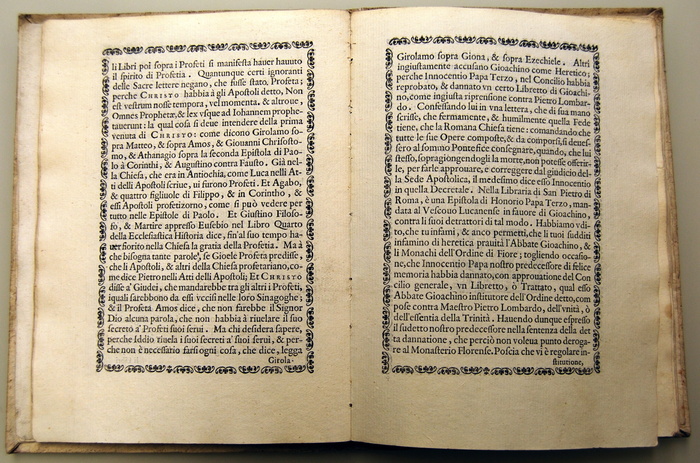 li Libri poi sopra i Profeti si manifesta hauer hauuto
il spirito di Profetia. Quantunque certi ignoranti
delle Sacre lettere negano, che fusse stato, Profeta;
perche CHRISTO habbia à gli Apostoli detto, Non
est vestrum nosse tempora, vel momenta. & altroue,
Omnes Prophetæ, & lex vsque ad Iohannem prophe-
tauerunt: la qual cosa si deue intendere della prima
venuta di CHRISTO: come dicono Girolamo so-
pra Matteo, & sopra Amos, & Giouanni Chrisosto-
mo, & Athanagio sopra la seconda Epistola di Pao-
lo à Corinthi, & Augustino contro Fausto. Già nel-
la Chiesa, che era in Antiochia, come Luca nelli At-
ti delli Apostoli scriue, ui furono Profeti. Et Agabo,
& quattro figliuole di Filippo, & in Corintho, &
essi Apostoli profetizorno, come si può vedere per
tutto nelle Epistole di Paolo. Et Giustino Filoso-
fo, & Martire appresso Eusebio nel Libro Quarto
della Ecclesiastica Historia dice, sin'al suo tempo ha-
uer fiorito nella Chiesa la gratia della Profetia. Ma à
che bisogna tante parole, se Gioele Profeta predisse,
che li Apostoli, & altri della Chiesa profetariano, co-
me dice Pietro nelli Atti delli Apostoli; Et CHRISTO
disse a' Giudei, che mandarebbe tra gli altri i Profeti,
iquali sarebbono da essi vccisi nelle loro Sinagoghe;
& il Profeta Amos dice, che non farebbe il Signor
Dio alcuna parola, che non habbia à riuelare il suo
secreto a' Profeti suoi serui. Ma chi desidera sapere,
perche Iddio riuela i suoi secreti a' suoi serui, & per-
che non è necessario farsi ogni cosa, che dice, legga
Girola-
Girolamo sopra Giona, & sopra Ezechiele. Altri
ingiustamente accusano Gioachino come Heretico;
perche Innocentio Papa Terzo, nel Concilio habbia
reprobato, & dannato vn certo Libretto di Gioachi-
no, come ingiusta riprensione contro Pietro Lombar-
do. Confessando lui in vna lettera, che di sua mano
scrisse, che fermamente, & humilmente quella Fede
tiene, che la Romana Chiesa tiene: comandando che
tutte le sue Opere composte, & da comporsi, si denes-
sero al sommo Pontefice consegnare, quando, che lui
stesso, sopragiongendogli la morte, non potesse offerir-
le, per farle approuare, e correggere dal giudicio del-
la Sede Apostolica, il medesimo dice esso Innocentio
in quella Decretale. Nella Libraria di San Pietro di
Roma, è una Epistola di Honorio Papa Terzo, man-
data al Vescouo Lucanense in fauore di Gioachino,
contra li suoi detrattori di tal modo. Habbiamo vdi-
to, che tu infami, & anco permetti, che li tuoi sudditi
infamino di heretica prauità l'Abbate Gioachino, &
li Monachi dell'Ordine di Fiore; togliendo occasio-
ne, che Innocentio Papa nostro predecessore di felice
memoria habbia dannato, con approuatione del Con-
cilio generale, vn Libretto, ò Trattato, qual esso
Abbate Gioachino institutore dell'Ordine detto, com
pose contra Maestro Pietro Lombardo, dell'vnità, ò
dell'essentia della Trinità. Hauendo dunque espresso
il sudetto nostro predecessore nella sentenza della det
ta dannatione, che perciò non voleua punto deroga-
re al Monasterio Florense. Poscia che vi è regolare in-
stitutione,